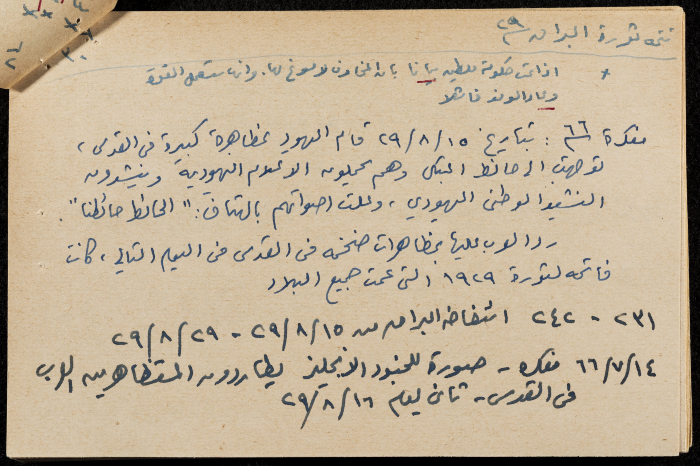 تتمة ثورة البراق ٢٩
× اذاعت حكومة فلسطين بيانا بان المخاوف لا مسوغ لها. وانها ستعمل القوة
وعاد الوفد فاشلا
مفكرة ٦٦ : بتاريخ ٢٩/٨/١٥ قام اليهود بمظاهرة كبيرة في القدس،
توجهت الى حائط المبكى وهم يحملون الاعلام اليهودية وينشدون
النشيد الوطني اليهودي، وعلت اصواتهم بالهتاف: "الحائط حائطنا".
رد العرب عليها بمظاهرات ضخمة في القدس في اليوم التالي، كانت
فاتحة لثورة ١٩٢٩ التي عمت جميع البلاد
٢٣١ - ٢٤٢ انتفاضة البراق من ٢٩/٨/١٥ - ٢٩/٨/٢٩
٦٦/٧/١٤ مفكرة - صورة للجنود الانجليز يطاردون المتظاهرين العرب
في القدس - ثاني يوم ٢٩/٨/١٦